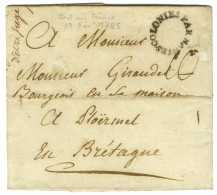 Port au Prince
19 Fev. 1785
COLONIES PAR
A Monsieur
Monsieur Giraudel
Bourgeois en Sa maison
A Ploërmel
En Brétagne